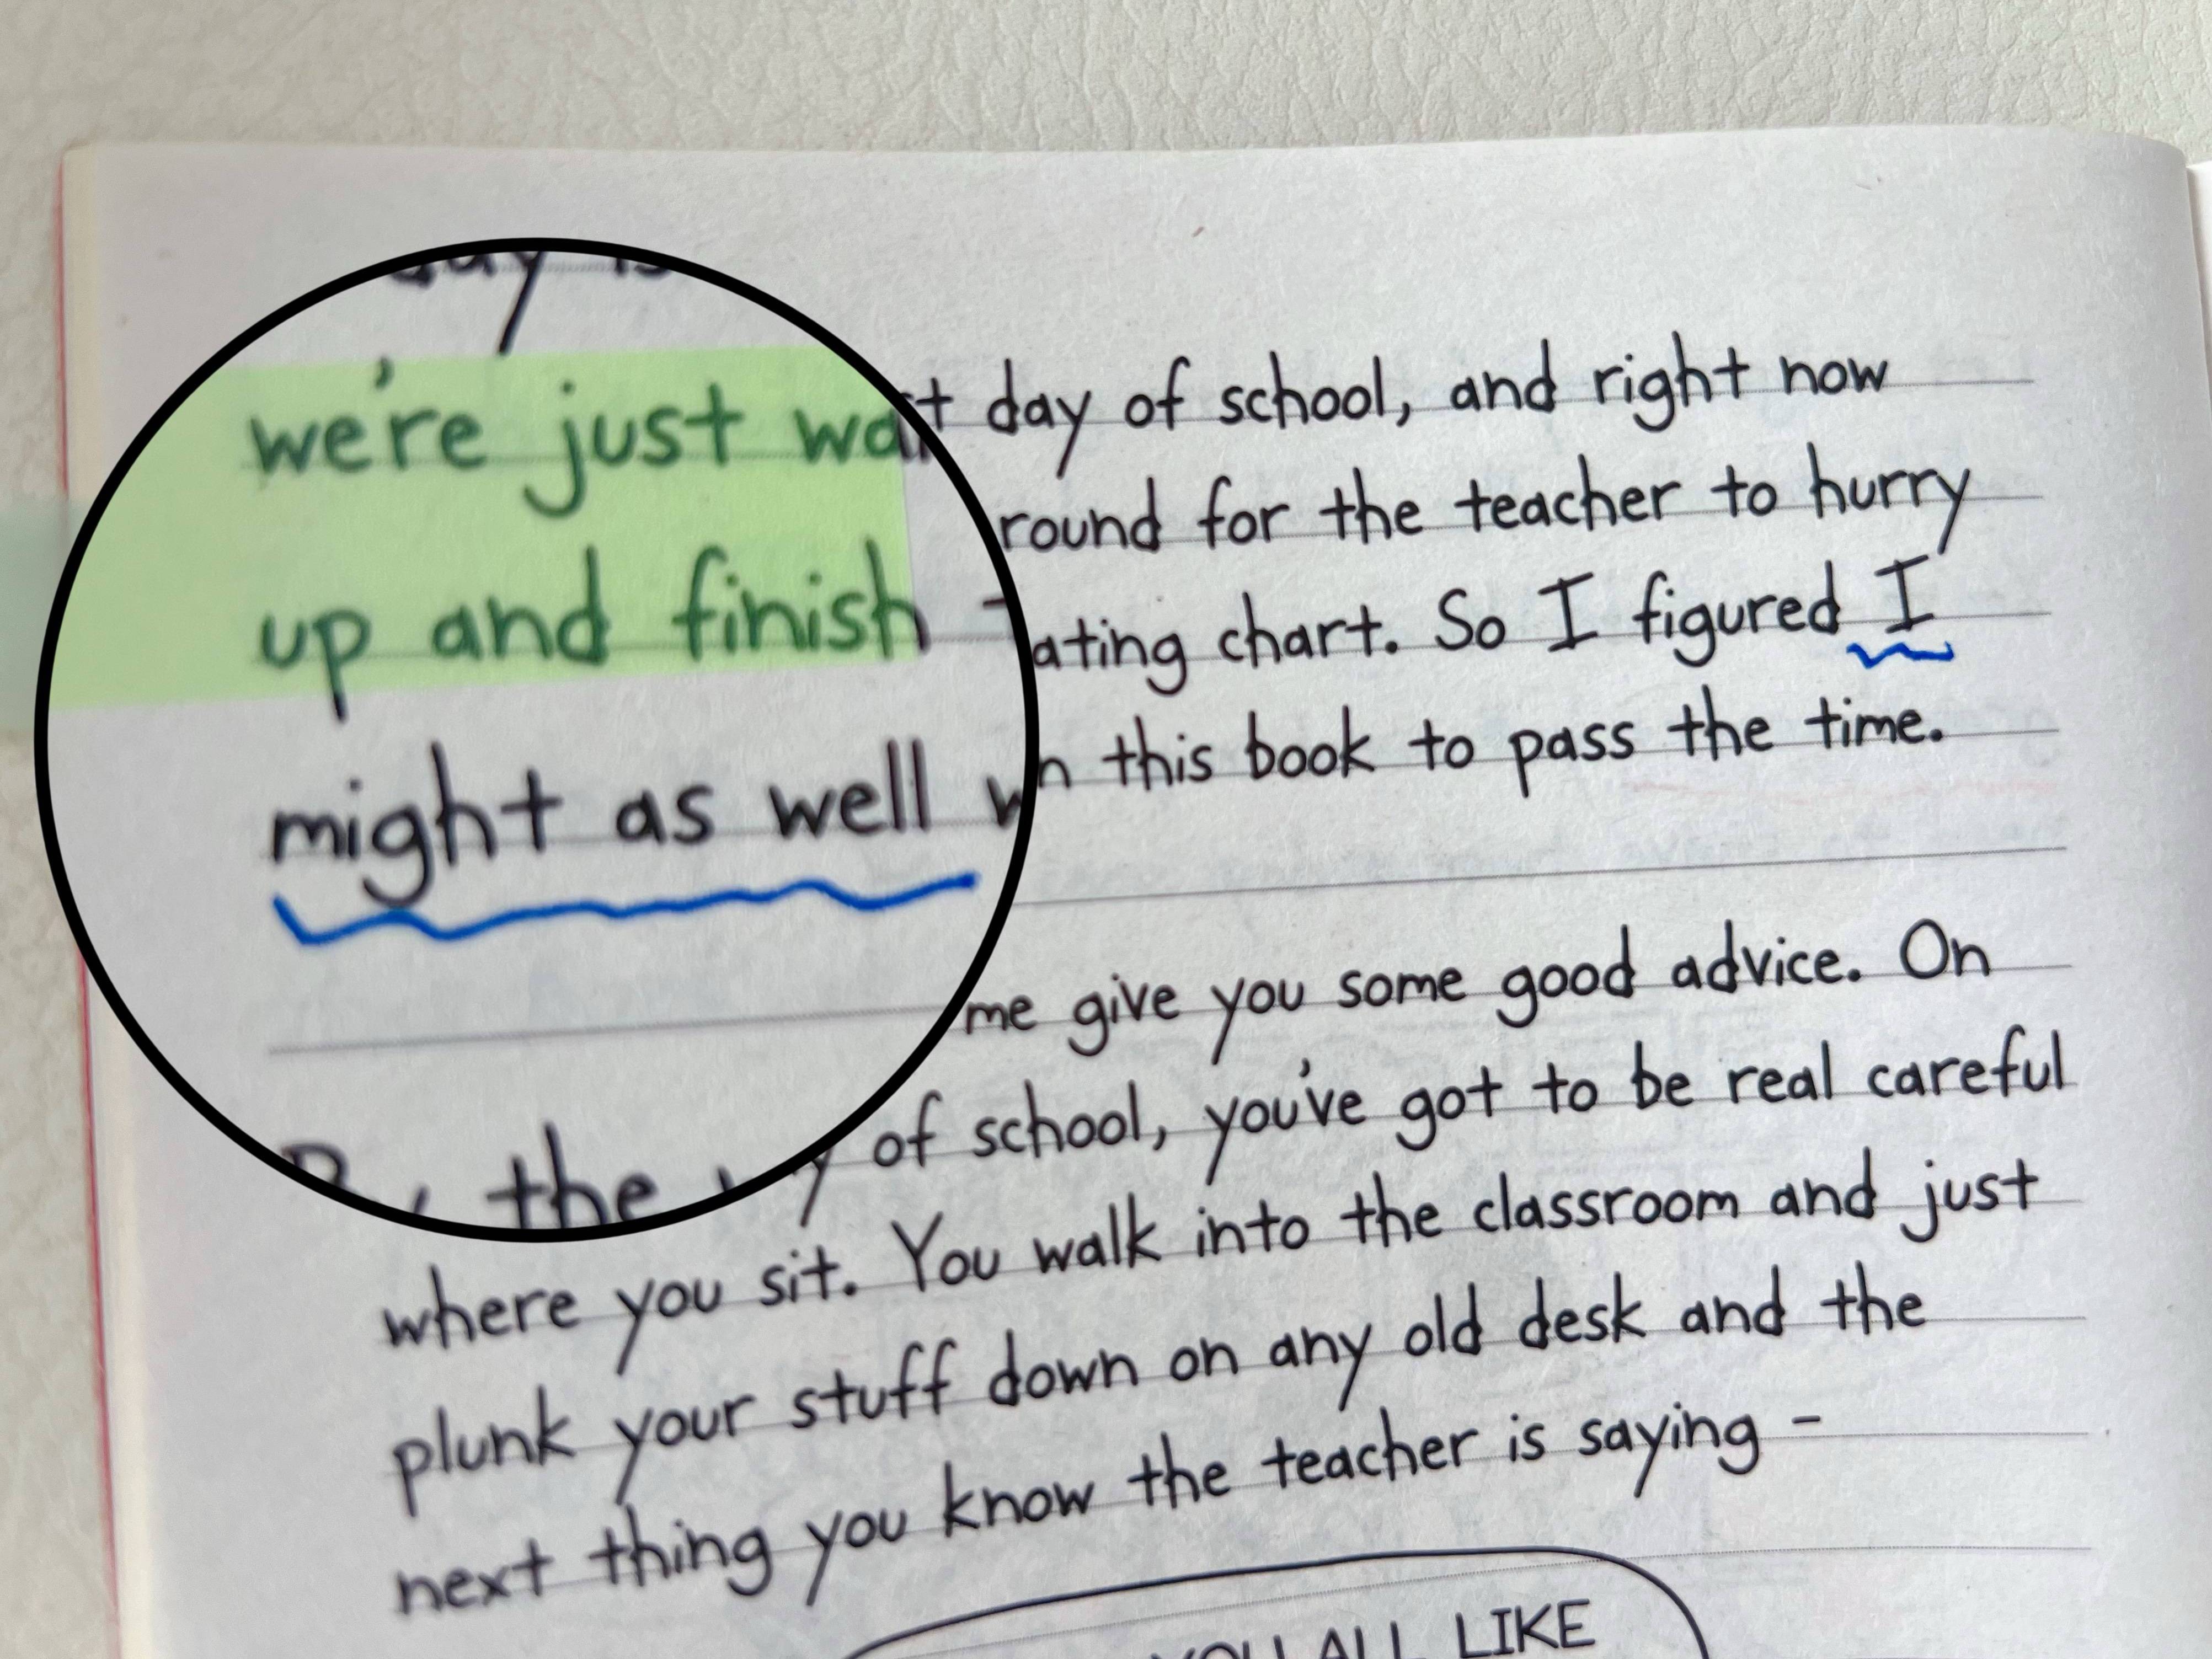 day is
we're just wa t day of school, and right now
round for the teacher to hurry
up and finish ating chart. So I figured I
might as well n this book to pass the time.
me give you some good advice. On
the of school, you've got to be real careful
where you sit. You walk into the classroom and just
plunk your stuff down on any old desk and the
next thing you know the teacher is saying -
YOU ALL LIKE